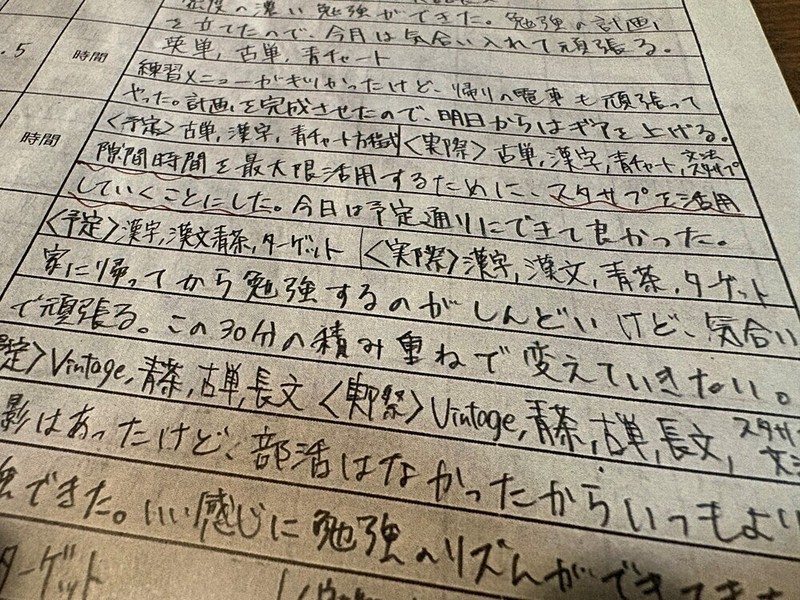 密度の濃い勉強ができた。勉強の計画
を立てたので、今月は気合い入れて頑張る。
英単、古単、青チャート
.5
時間
練習メニューがキツかったけど、帰りの電車も頑張って
やった。計画を完成させたので、明日からはギアを上げる。
<予定>古単,漢字,青チャート方程式
<実際>古単,漢字,青チャート,文法
スタサプ
時間
隙間時間を最大限活用するために、スタサプを活用
していくことにした。今日は予定通りにできて良かった。
<予定>漢字,漢文,青茶,ターゲット
<実際>漢字,漢文,青茶,ターゲット
家に帰ってから勉強するのがしんどいけど、気合い
で頑張る。この30分の積み重ねで変えていきたい。
定>Vintage,青茶,古単,長文
<実際>Vintage,青茶,古単,長文,
スタサ
影はあったけど、部活はなかったからいつもより
できた。いい感じに勉強のリズムができてき
ターゲット